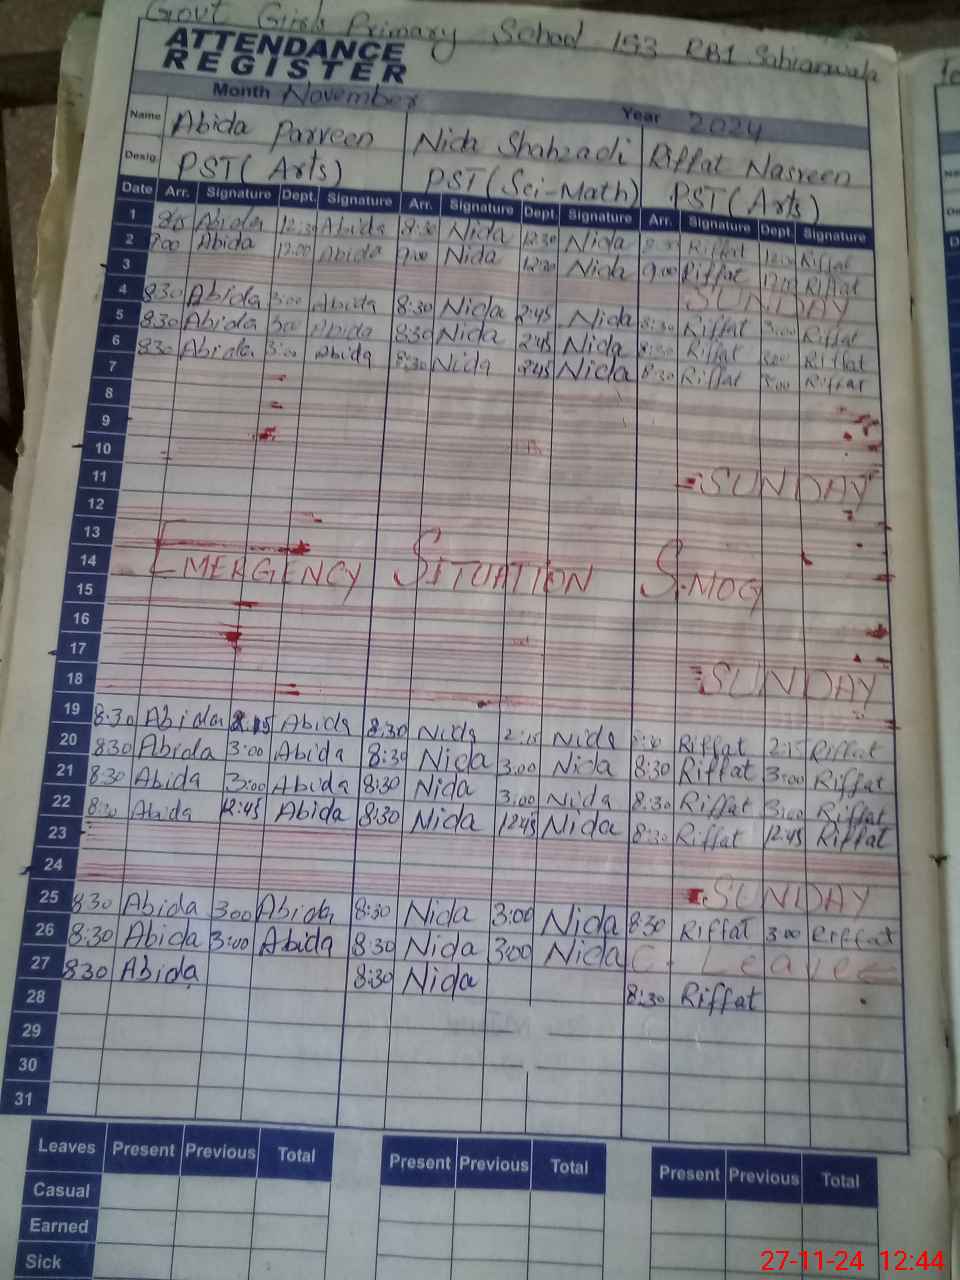 Govt Girls Primary School 153 RB1 Sabiarwala
ATTENDANCE
REGISTER
Month November Year 2024
Name Abida Parveen Nida Shahzadi Riffat Nasreen
Desig. PST(Arts) PST(Sci-Math) PST(Arts)
Date Arr. Signature Dept. Signature Arr. Signature Dept. Signature Arr. Signature Dept. Signature
1 Abida 12:30 Abida 8:30 Nida 12:30 Nida Riffat Riffat
2 9:00 Abida 12:00 Abida 9:00 Nida 12:00 Nida 9:00 Riffat Riffat
3 SUNDAY
4 8:30 Abida 3:00 Abida 8:30 Nida 2:45 Nida 8:30 Riffat 3:00 Riffat
5 8:30 Abida 3:00 Abida 8:30 Nida 2:45 Nida 8:30 Riffat 3:00 Riffat
6 8:30 Abida 3:00 Abida 8:30 Nida 2:45 Nida 8:30 Riffat 3:00 Riffat
7
8
9
10 SUNDAY
11
12
13
14 EMERGENCY SITUATION SMOG
15
16
17 SUNDAY
18
19 8:30 Abida 2:15 Abida 8:30 Nida 2:15 Nida 8:30 Riffat 2:15 Riffat
20 8:30 Abida 3:00 Abida 8:30 Nida 3:00 Nida 8:30 Riffat 3:00 Riffat
21 8:30 Abida 3:00 Abida 8:30 Nida 3:00 Nida 8:30 Riffat 3:00 Riffat
22 8:30 Abida 12:45 Abida 8:30 Nida 12:45 Nida 8:30 Riffat 12:45 Riffat
23
24 SUNDAY
25 8:30 Abida 3:00 Abida 8:30 Nida 3:00 Nida 8:30 Riffat 3:00 Riffat
26 8:30 Abida 3:00 Abida 8:30 Nida 3:00 Nida C. Leave
27 8:30 Abida 8:30 Nida 8:30 Riffat
28
29
30
31
Leaves Present Previous Total Present Previous Total Present Previous Total
Casual
Earned
Sick
27-11-24 12:44